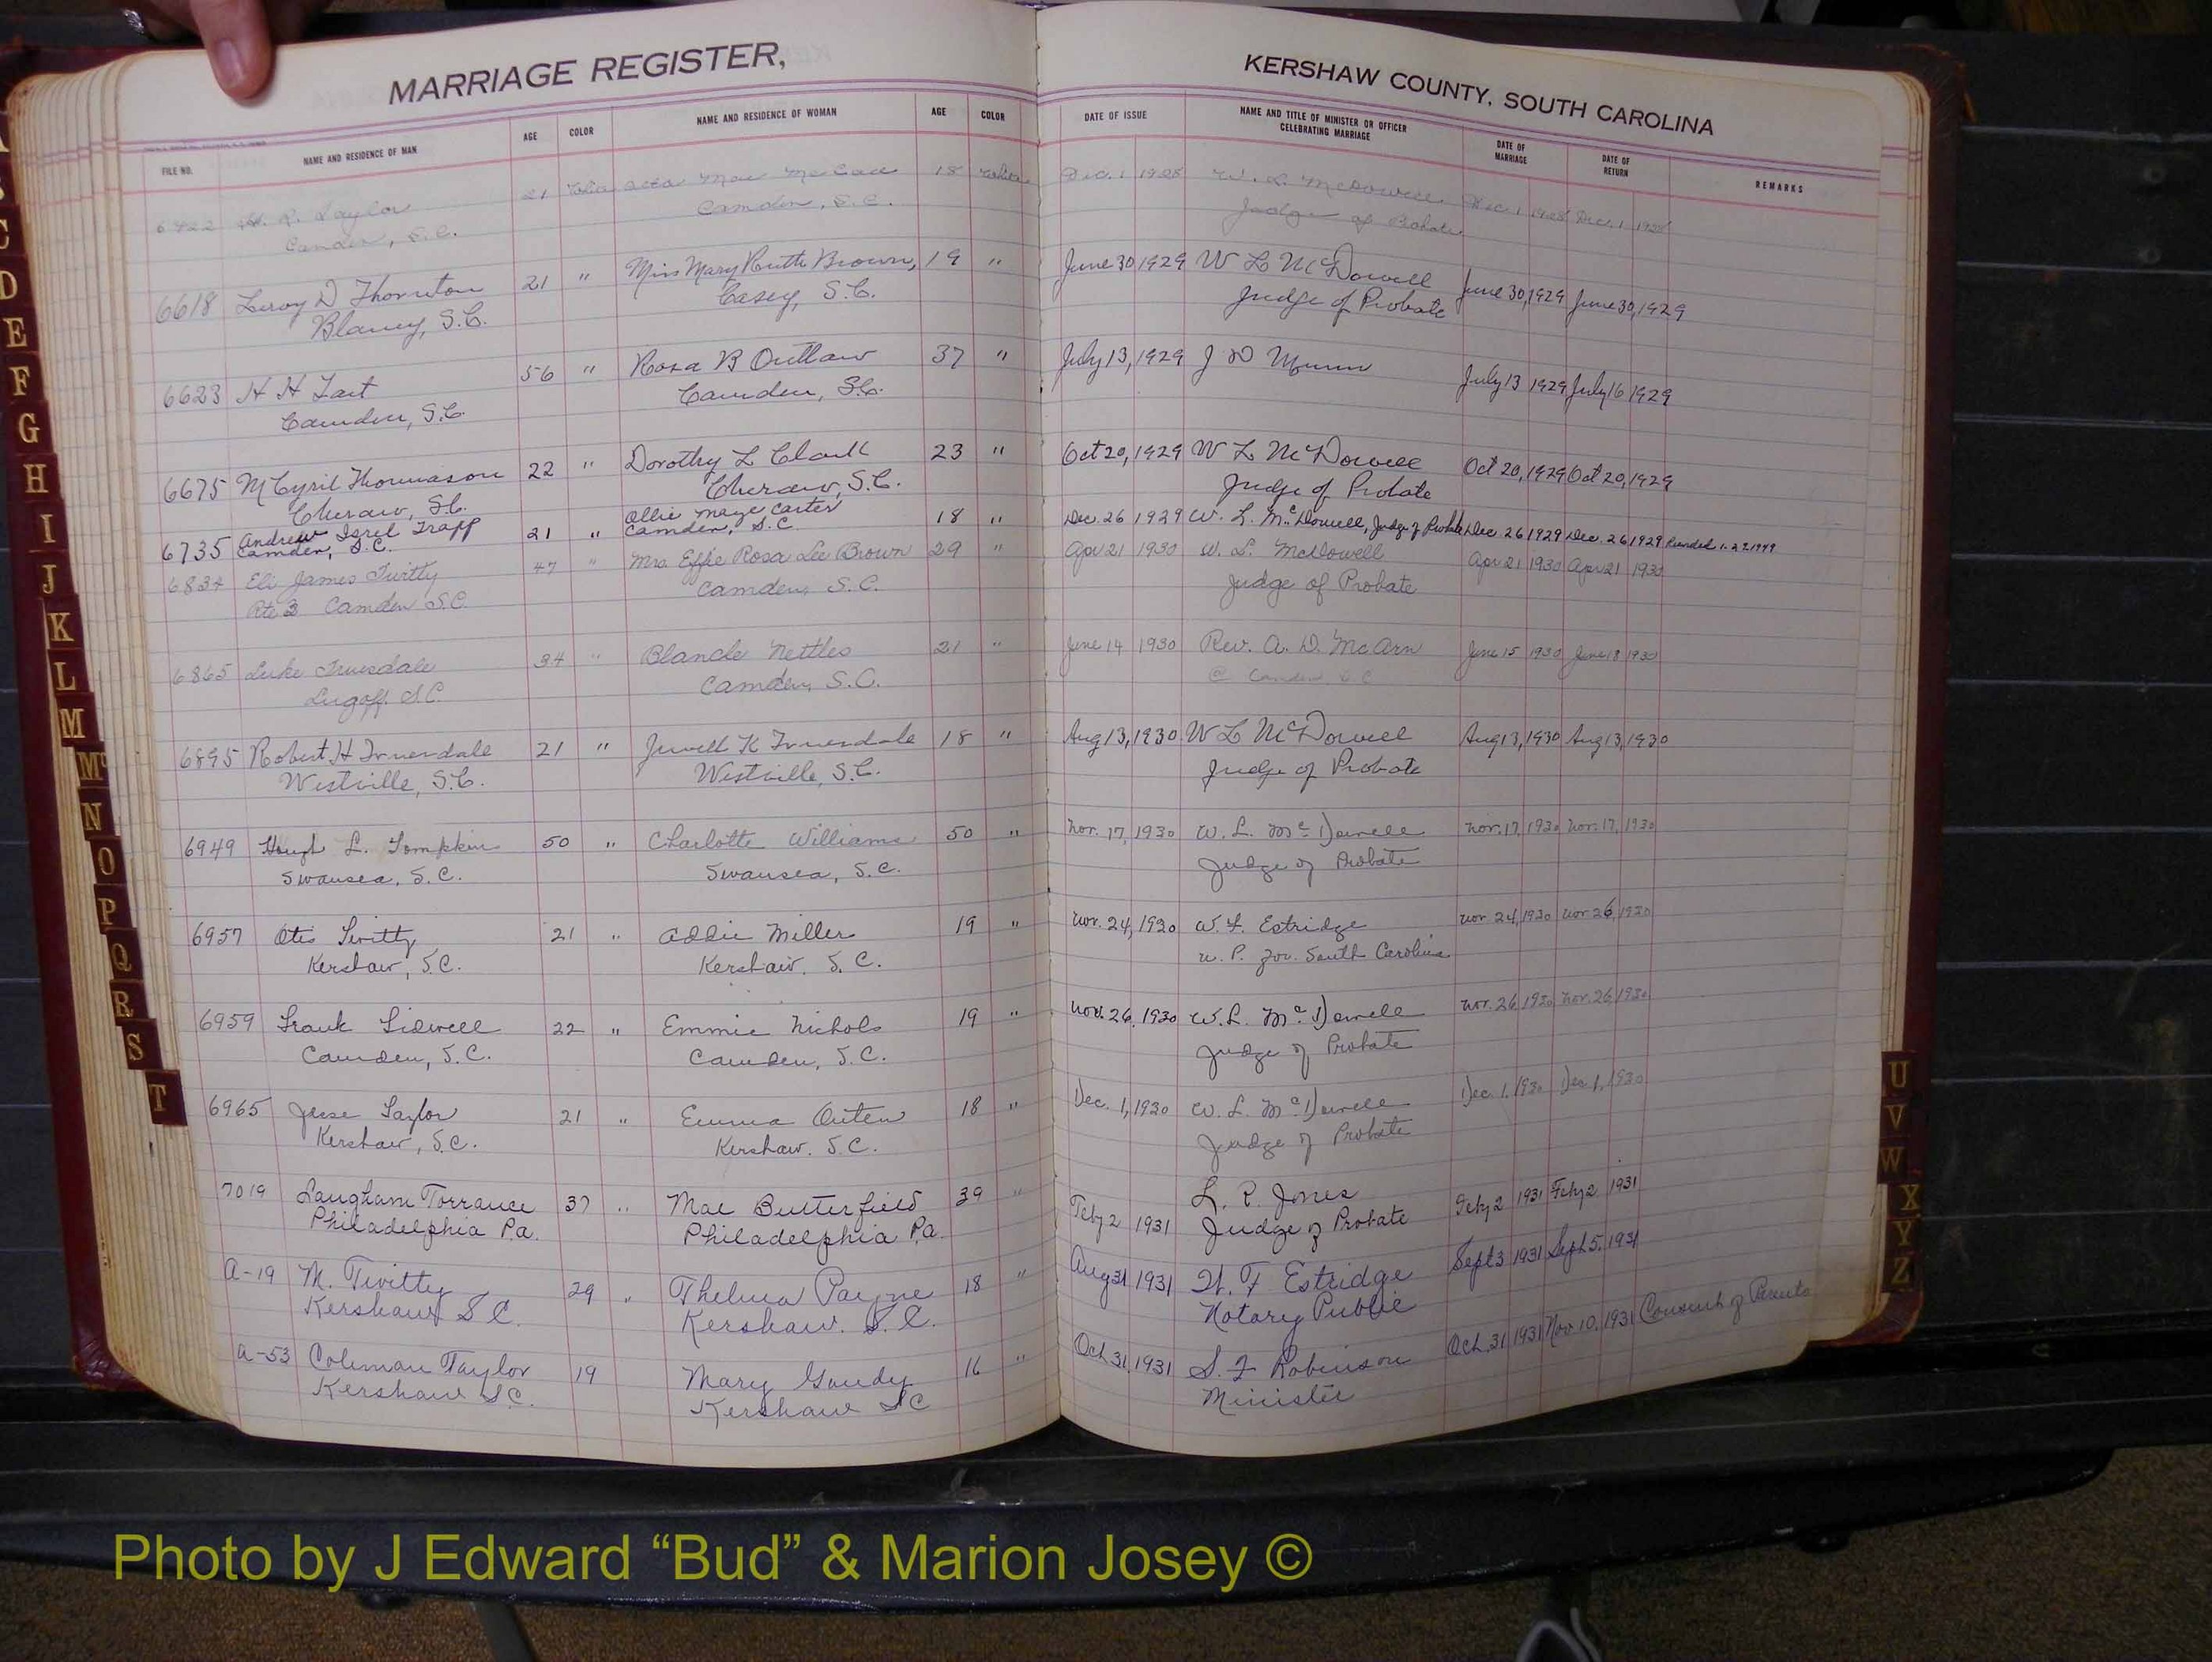 MARRIAGE REGISTER,
KERSHAW COUNTY, SOUTH CAROLINA
FILE NO. NAME AND RESIDENCE OF MAN AGE COLOR NAME AND RESIDENCE OF WOMAN AGE COLOR DATE OF ISSUE NAME AND TITLE OF MINISTER OR OFFICER CELEBRATING MARRIAGE DATE OF MARRIAGE DATE OF RETURN REMARKS
6422 H. R. Taylor 21 White Mae McCaa 18 White Dec. 1 1928 W. L. McDowell Dec. 1 1928 Dec. 1 1928
Camden, S.C. Camden, S.C. Judge of Probate
6618 Leroy D Thornton 21 " Miss Mary Ruth Brown, 19 " June 30, 1929 W L McDowell June 30, 1929 June 30, 1929
Blaney, S.C. Casey, S.C. Judge of Probate
6623 H H Tart 56 " Rosa B Outlaw 37 " July 13, 1929 J D Munn July 13 1929 July 16 1929
Camden, S.C. Camden, S.C.
6675 M Cyril Thomason 22 " Dorothy L Clark 23 " Oct 20, 1929 W L McDowell Oct 20, 1929 Oct 20, 1929
Cheraw, S.C. Cheraw, S.C. Judge of Probate
6735 Andrew Isrel Trapp 21 " Ollie Maye Carter 18 " Dec. 26 1929 W. L. McDowell, Judge of Probate Dec. 26 1929 Dec. 26 1929
Camden, S.C. Camden, S.C.
6834 Eli James Twitty 47 " Mrs. Effie Rosa Lee Brown 29 " Apr 21 1930 W. L. McDowell Apr 21 1930 Apr 21 1930
Rte 3 Camden S.C. Camden, S.C. Judge of Probate
6865 Luke Truesdale 34 " Blanche Nettles 21 " June 14 1930 Rev. A. D. McArn June 15 1930 June 18 1930
Lugoff, S.C. Camden, S.C. @ Camden, S.C.
6895 Robert H Truesdale 21 " Jewell K Truesdale 18 " Aug 13, 1930 W L McDowell Aug 13, 1930 Aug 13, 1930
Westville, S.C. Westville, S.C. Judge of Probate
6949 L. Tompkins 50 " Charlotte Williams 50 " Nov. 17, 1930 W. L. McDowell Nov. 17, 1930 Nov. 17, 1930
Swansea, S.C. Swansea, S.C. Judge of Probate
6957 Otis Twitty 21 " Addie Miller 19 " Nov. 24, 1930 W. F. Estridge Nov. 24, 1930 Nov. 26, 1930
Kershaw, S.C. Kershaw, S.C. N. P. for South Carolina
6959 Frank Tidwell 22 " Emmie Nichols 19 " Nov. 26, 1930 W. L. McDowell Nov. 26, 1930 Nov. 26, 1930
Camden, S.C. Camden, S.C. Judge of Probate
6965 Jesse Taylor 21 " Emma Outen 18 " Dec. 1, 1930 W. L. McDowell Dec. 1, 1930 Dec. 1, 1930
Kershaw, S.C. Kershaw. S.C. Judge of Probate
7019 Langham Torrance 37 " Mae Butterfield 39 " Feby 2 1931 L. R. Jones Feby 2 1931 Feby 2 1931
Philadelphia Pa. Philadelphia Pa. Judge of Probate
A-19 M. Twitty 29 " Thelma Payne 18 " Aug 31, 1931 W. F Estridge Sept 3 1931 Sept 5, 1931
Kershaw S C. Kershaw. S.C. Notary Public
A-53 Coleman Taylor 19 Mary Gandy 16 " Oct. 31, 1931 S. F Robinson Oct. 31 1931 Nov 10, 1931 Consent of Parents
Kershaw S.C. Kershaw S C Minister
C
D
E
F
G
H
I
J
K
L
M
Mc
N
O
P
Q
R
S
T
U
V
W
X
Y
Z
Photo by J Edward “Bud” & Marion Josey ©